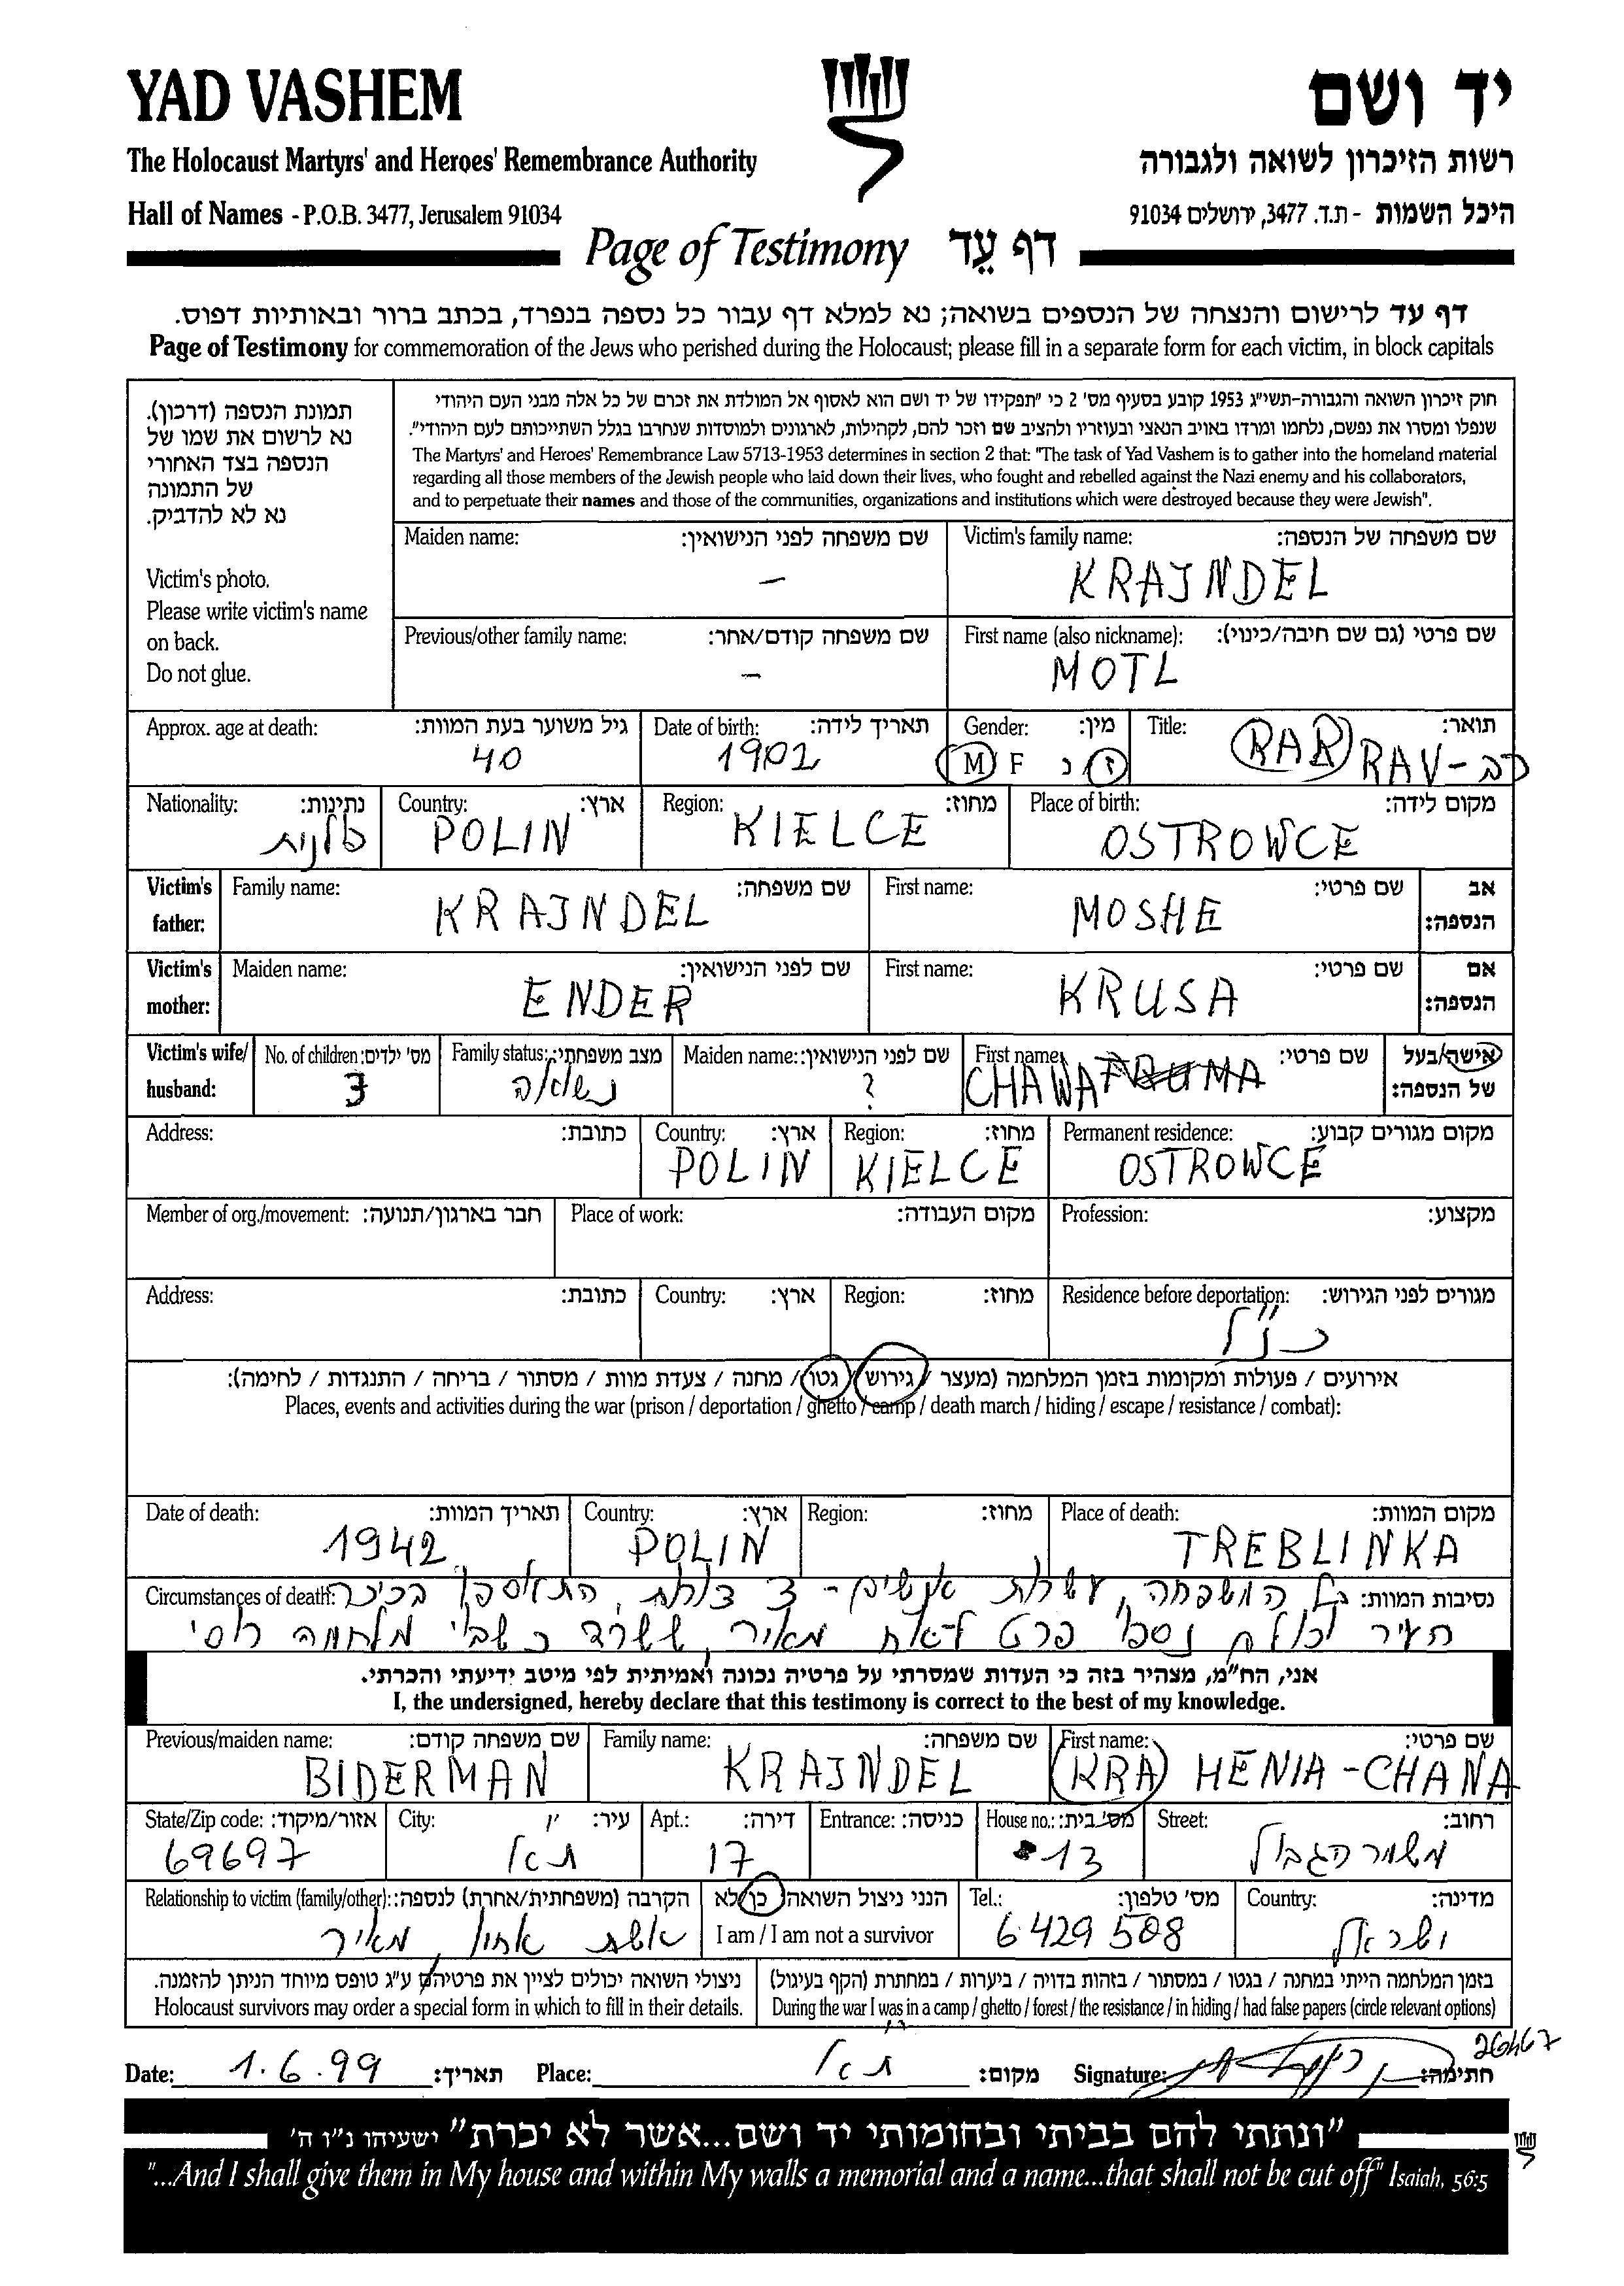 YAD VASHEM
יד ושם
The Holocaust Martyrs' and Heroes' Remembrance Authority
רשות הזיכרון לשואה ולגבורה
Hall of Names - P.O.B. 3477, Jerusalem 91034
היכל השמות - ת.ד. 3477, ירושלים 91034
Page of Testimony דף עֵד
דף עד לרישום והנצחה של הנספים בשואה; נא למלא דף עבור כל נספה בנפרד, בכתב ברור ובאותיות דפוס.
Page of Testimony for commemoration of the Jews who perished during the Holocaust; please fill in a separate form for each victim, in block capitals
תמונת הנספה (דרכון).
נא לרשום את שמו של
הנספה בצד האחורי
של התמונה
נא לא להדביק.
Victim's photo.
Please write victim's name
on back.
Do not glue.
חוק זיכרון השואה והגבורה-תשי"ג 1953 קובע בסעיף מס' 2 כי "תפקידו של יד ושם הוא לאסוף אל המולדת את זכרם של כל אלה מבני העם היהודי
שנפלו ומסרו את נפשם, נלחמו ומרדו באויב הנאצי ובעוזריו ולהציב שם וזכר להם, לקהילות, לארגונים ולמוסדות שנחרבו בגלל השתייכותם לעם היהודי".
The Martyrs' and Heroes' Remembrance Law 5713-1953 determines in section 2 that: "The task of Yad Vashem is to gather into the homeland material
regarding all those members of the Jewish people who laid down their lives, who fought and rebelled against the Nazi enemy and his collaborators,
and to perpetuate their names and those of the communities, organizations and institutions which were destroyed because they were Jewish".
Maiden name: שם משפחה לפני הנישואין:
—
Victim's family name: שם משפחה של הנספה:
KRAJNDEL
Previous/other family name: שם משפחה קודם/אחר:
—
First name (also nickname): שם פרטי (גם שם חיבה/כינוי):
MOTL
Approx. age at death: גיל משוער בעת המוות:
40
Date of birth: תאריך לידה:
1902
Gender: מין:
M F נ ז
Title: תואר:
RAR RAV-רב
Nationality: נתינות:
פולנית
Country: ארץ:
POLIN
Region: מחוז:
KIELCE
Place of birth: מקום לידה:
OSTROWCE
Victim's father:
Family name: שם משפחה:
KRAJNDEL
First name: שם פרטי:
MOSHE
אב הנספה:
Victim's mother:
Maiden name: שם לפני הנישואין:
ENDER
First name: שם פרטי:
KRUSA
אם הנספה:
Victim's wife/ husband:
No. of children: מס' ילדים:
3
Family status: מצב משפחתי:
נשוי/אה
Maiden name: שם לפני הנישואין:
?
First name: שם פרטי:
CHAWA FRUMA
אישה/בעל של הנספה:
Address: כתובת:
Country: ארץ:
POLIN
Region: מחוז:
KIELCE
Permanent residence: מקום מגורים קבוע:
OSTROWCE
Member of org./movement: חבר בארגון/תנועה:
Place of work: מקום העבודה:
Profession: מקצוע:
Address: כתובת:
Country: ארץ:
Region: מחוז:
Residence before deportation: מגורים לפני הגירוש:
כנ"ל
אירועים / פעולות ומקומות בזמן המלחמה (מעצר / גירוש / גטו / מחנה / צעדת מוות / מסתור / בריחה / התנגדות / לחימה):
Places, events and activities during the war (prison / deportation / ghetto / camp / death march / hiding / escape / resistance / combat):
Date of death: תאריך המוות:
1942
Country: ארץ:
POLIN
Region: מחוז:
Place of death: מקום המוות:
TREBLINKA
Circumstances of death: נסיבות המוות:
כל המשפחה, עשרות אנשים - 3 דורות, התאספו בכיכר
העיר וכולם נספו פרט לאח מאיר, ששרד כשבוי מלחמה רוסי
אני, הח"מ, מצהיר בזה כי העדות שמסרתי על פרטיה נכונה ואמיתית לפי מיטב ידיעתי והכרתי.
I, the undersigned, hereby declare that this testimony is correct to the best of my knowledge.
Previous/maiden name: שם משפחה קודם:
BIDERMAN
Family name: שם משפחה:
KRAJNDEL
First name: שם פרטי:
(KRA) HENIA-CHANA
State/Zip code: אזור/מיקוד:
69697
City: עיר:
ת"א
Apt.: דירה:
17
Entrance: כניסה:
House no.: מס' בית:
13
Street: רחוב:
משמר הגבול
Relationship to victim (family/other): הקרבה (משפחתית/אחרת) לנספה:
אשת אחיו, מאיר
הנני ניצול השואה: כן לא
I am / I am not a survivor
Tel.: מס' טלפון:
6429508
Country: מדינה:
ישראל
ניצולי השואה יכולים לציין את פרטיהם ע"ג טופס מיוחד הניתן להזמנה.
Holocaust survivors may order a special form in which to fill in their details.
בזמן המלחמה הייתי במחנה / בגטו / במסתור / בזהות בדויה / ביערות / במחתרת (הקף בעיגול)
During the war I was in a camp / ghetto / forest / the resistance / in hiding / had false papers (circle relevant options)
26467
Date: 1.6.99 תאריך: Place: ת"א מקום: Signature: חתימה:
"ונתתי להם בביתי ובחומותי יד ושם...אשר לא יכרת" ישעיהו נ"ו ה'
"...And I shall give them in My house and within My walls a memorial and a name...that shall not be cut off" Isaiah, 56:5